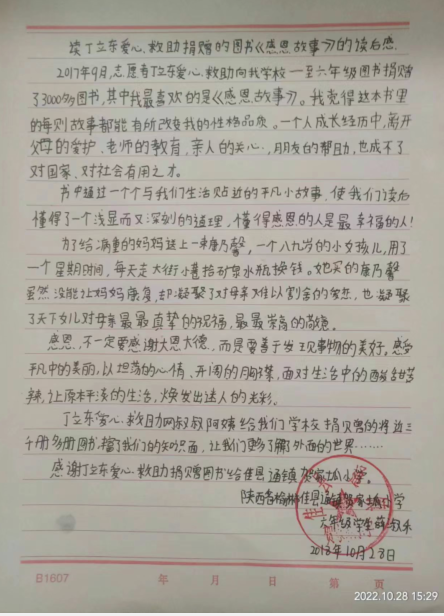 读丁立东爱心救助捐赠的图书《感恩故事》的读后感
2017年9月,志愿者丁立东爱心救助向我学校一至六年级图书捐赠
了3000多图书,其中我最喜欢的是《感恩故事》。我觉得这本书里
的每则故事都能有所改变我的性格品质。一个人成长经历中,离开
父母的爱护、老师的教育、亲人的关心,朋友的帮助,也成不了
对国家、对社会有用之才。
书中通过一个个与我们生活贴近的平凡小故事,使我们读后
懂得了一个浅显而又深刻的道理,懂得感恩的人是最幸福的人!
为了给病重的妈妈送上一束康乃馨,一个八九岁的小女孩儿,用了
一个星期时间,每天走大街小巷拾矿泉水瓶换钱。她买的康乃馨
虽然没能让妈妈康复,却凝聚了对母亲难以割舍的爱,也凝聚
了天下女儿对母亲最最真挚的祝福,最最崇高的敬意。
感恩,不一定要感谢大恩大德,而是要善于发现事物的美好。感受
平凡中的美丽,以坦荡的心情、开阔的胸襟,面对生活中的酸甜苦
辣,让原本平淡的生活,焕发出迷人的光彩。
丁立东爱心救助网叔叔阿姨给我们学校捐赠的将近三
千册多册图书,擴了我们的知识面,让我们更多了解了外面的世界……
感谢丁立东爱心救助捐赠图书给佳县通镇贺家坬小学。
陕西省榆林佳县通镇贺家坬小学
六年级学生薛
2018年10月28日
B1607 年 月 日 第 页
2022.10.28 15:29